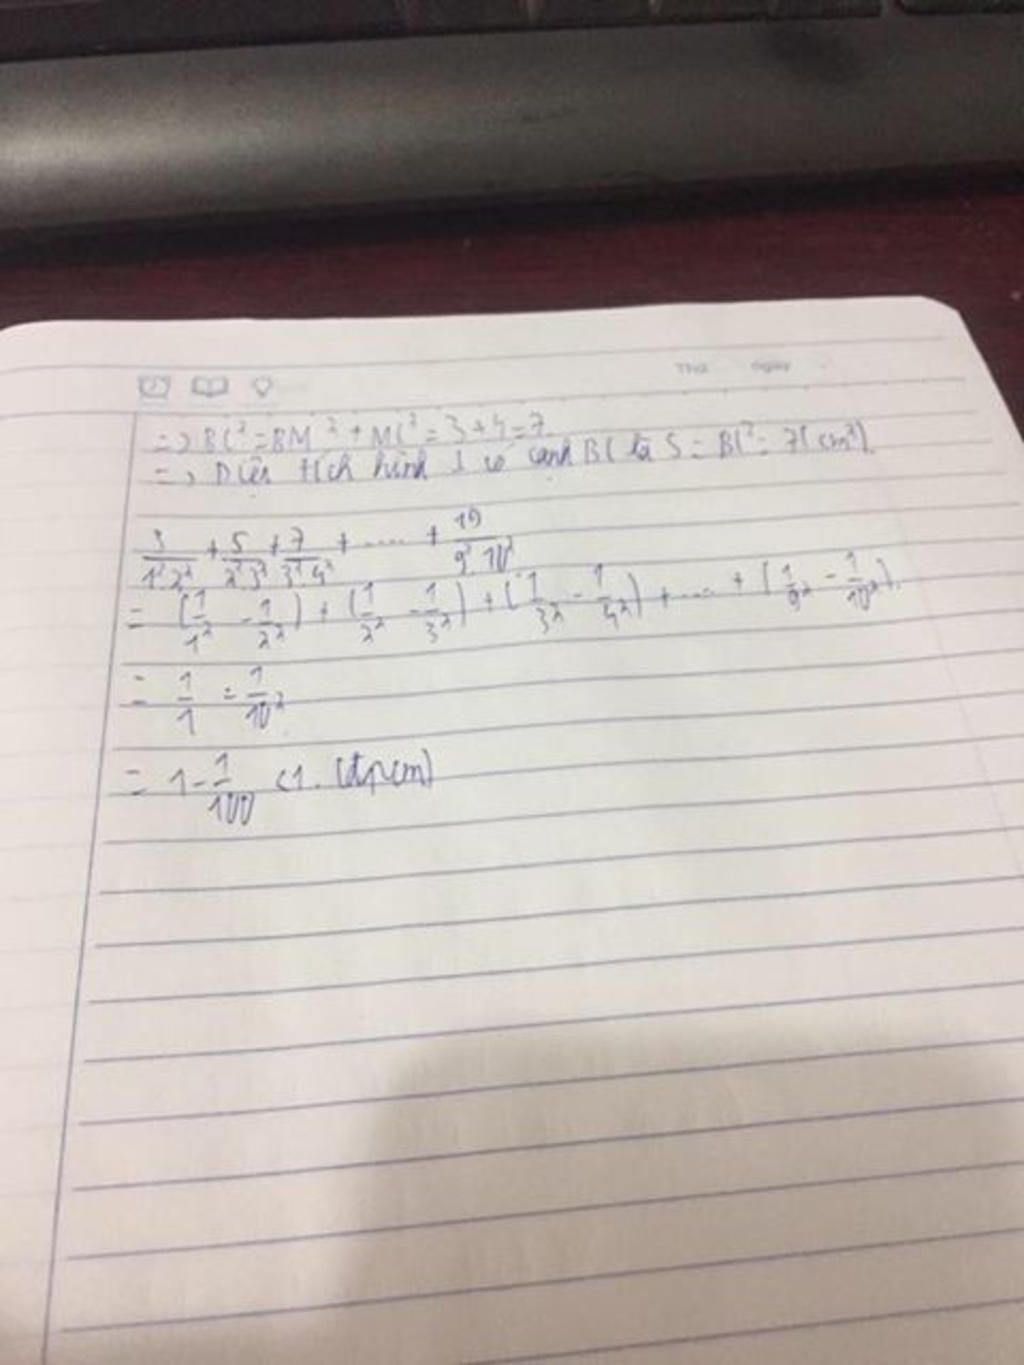 Thứ ngày
=> BC² = BM² + MC² = 3 + 4 = 7
=> Diện tích hình có cạnh BC là S = BC² = 7(cm²).
3/1².2² + 5/2².3² + 7/3².4² + ..... + 19/9².10²
= (1/1² - 1/2²) + (1/2² - 1/3²) + (1/3² - 1/4²) + ..... + (1/9² - 1/10²).
= 1/1 - 1/10²
= 1 - 1/100 < 1. (đpcm)